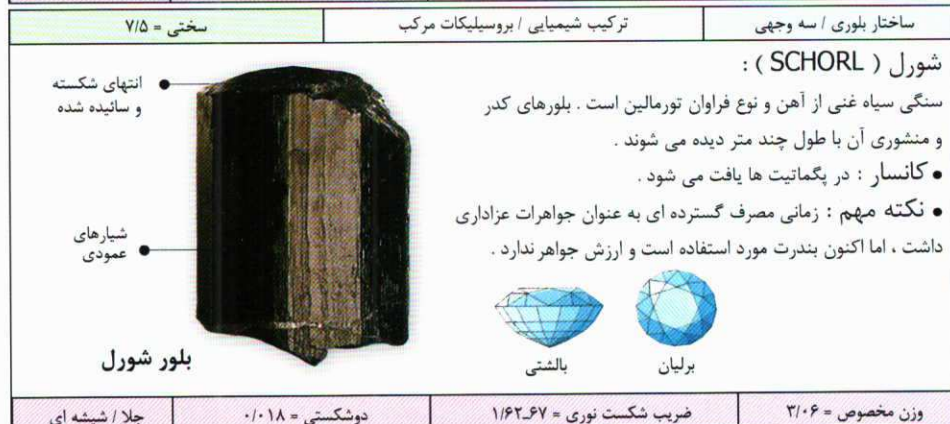 ساختار بلوری / سه وجهی
ترکیب شیمیایی / بروسیلیکات مرکب
سختی = ۷/۵
شورل ( SCHORL ) :
سنگی سیاه غنی از آهن و نوع فراوان تورمالین است . بلورهای کدر
و منشوری آن با طول چند متر دیده می شوند .
● کانسار : در پگماتیت ها یافت می شود .
● نکته مهم : زمانی مصرف گسترده ای به عنوان جواهرات عزاداری
داشت ، اما اکنون بندرت مورد استفاده است و ارزش جواهر ندارد .
انتهای شکسته
و سائیده شده
شیارهای
عمودی
بلور شورل
برلیان
بالشتی
وزن مخصوص = ۳/۰۶
ضریب شکست نوری = ۱/۶۲ـ۶۷
دوشکستی = ۰/۰۱۸
جلا / شیشه ای